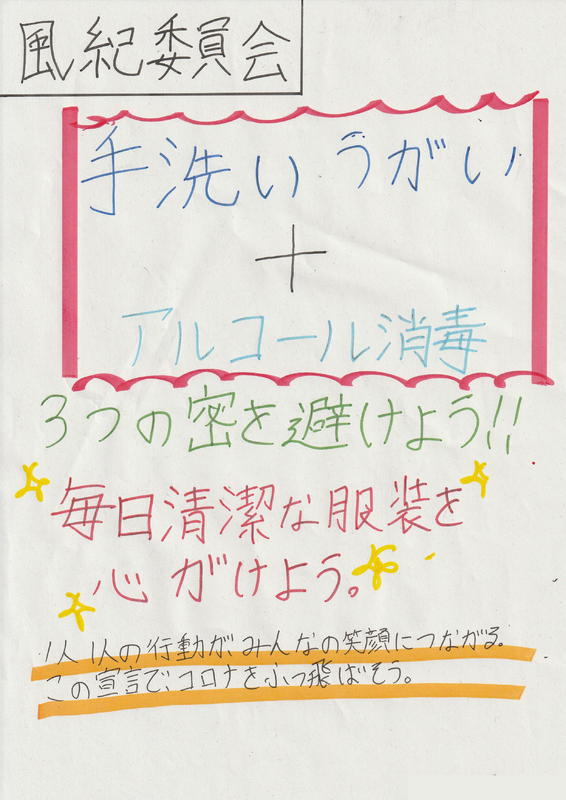 風紀委員会
手洗い うがい
＋
アルコール消毒
3つの密を避けよう!!
毎日清潔な服装を
心がけよう。
1人1人の行動が、みんなの笑顔につながる。
この宣言で、コロナをふっ飛ばそう。